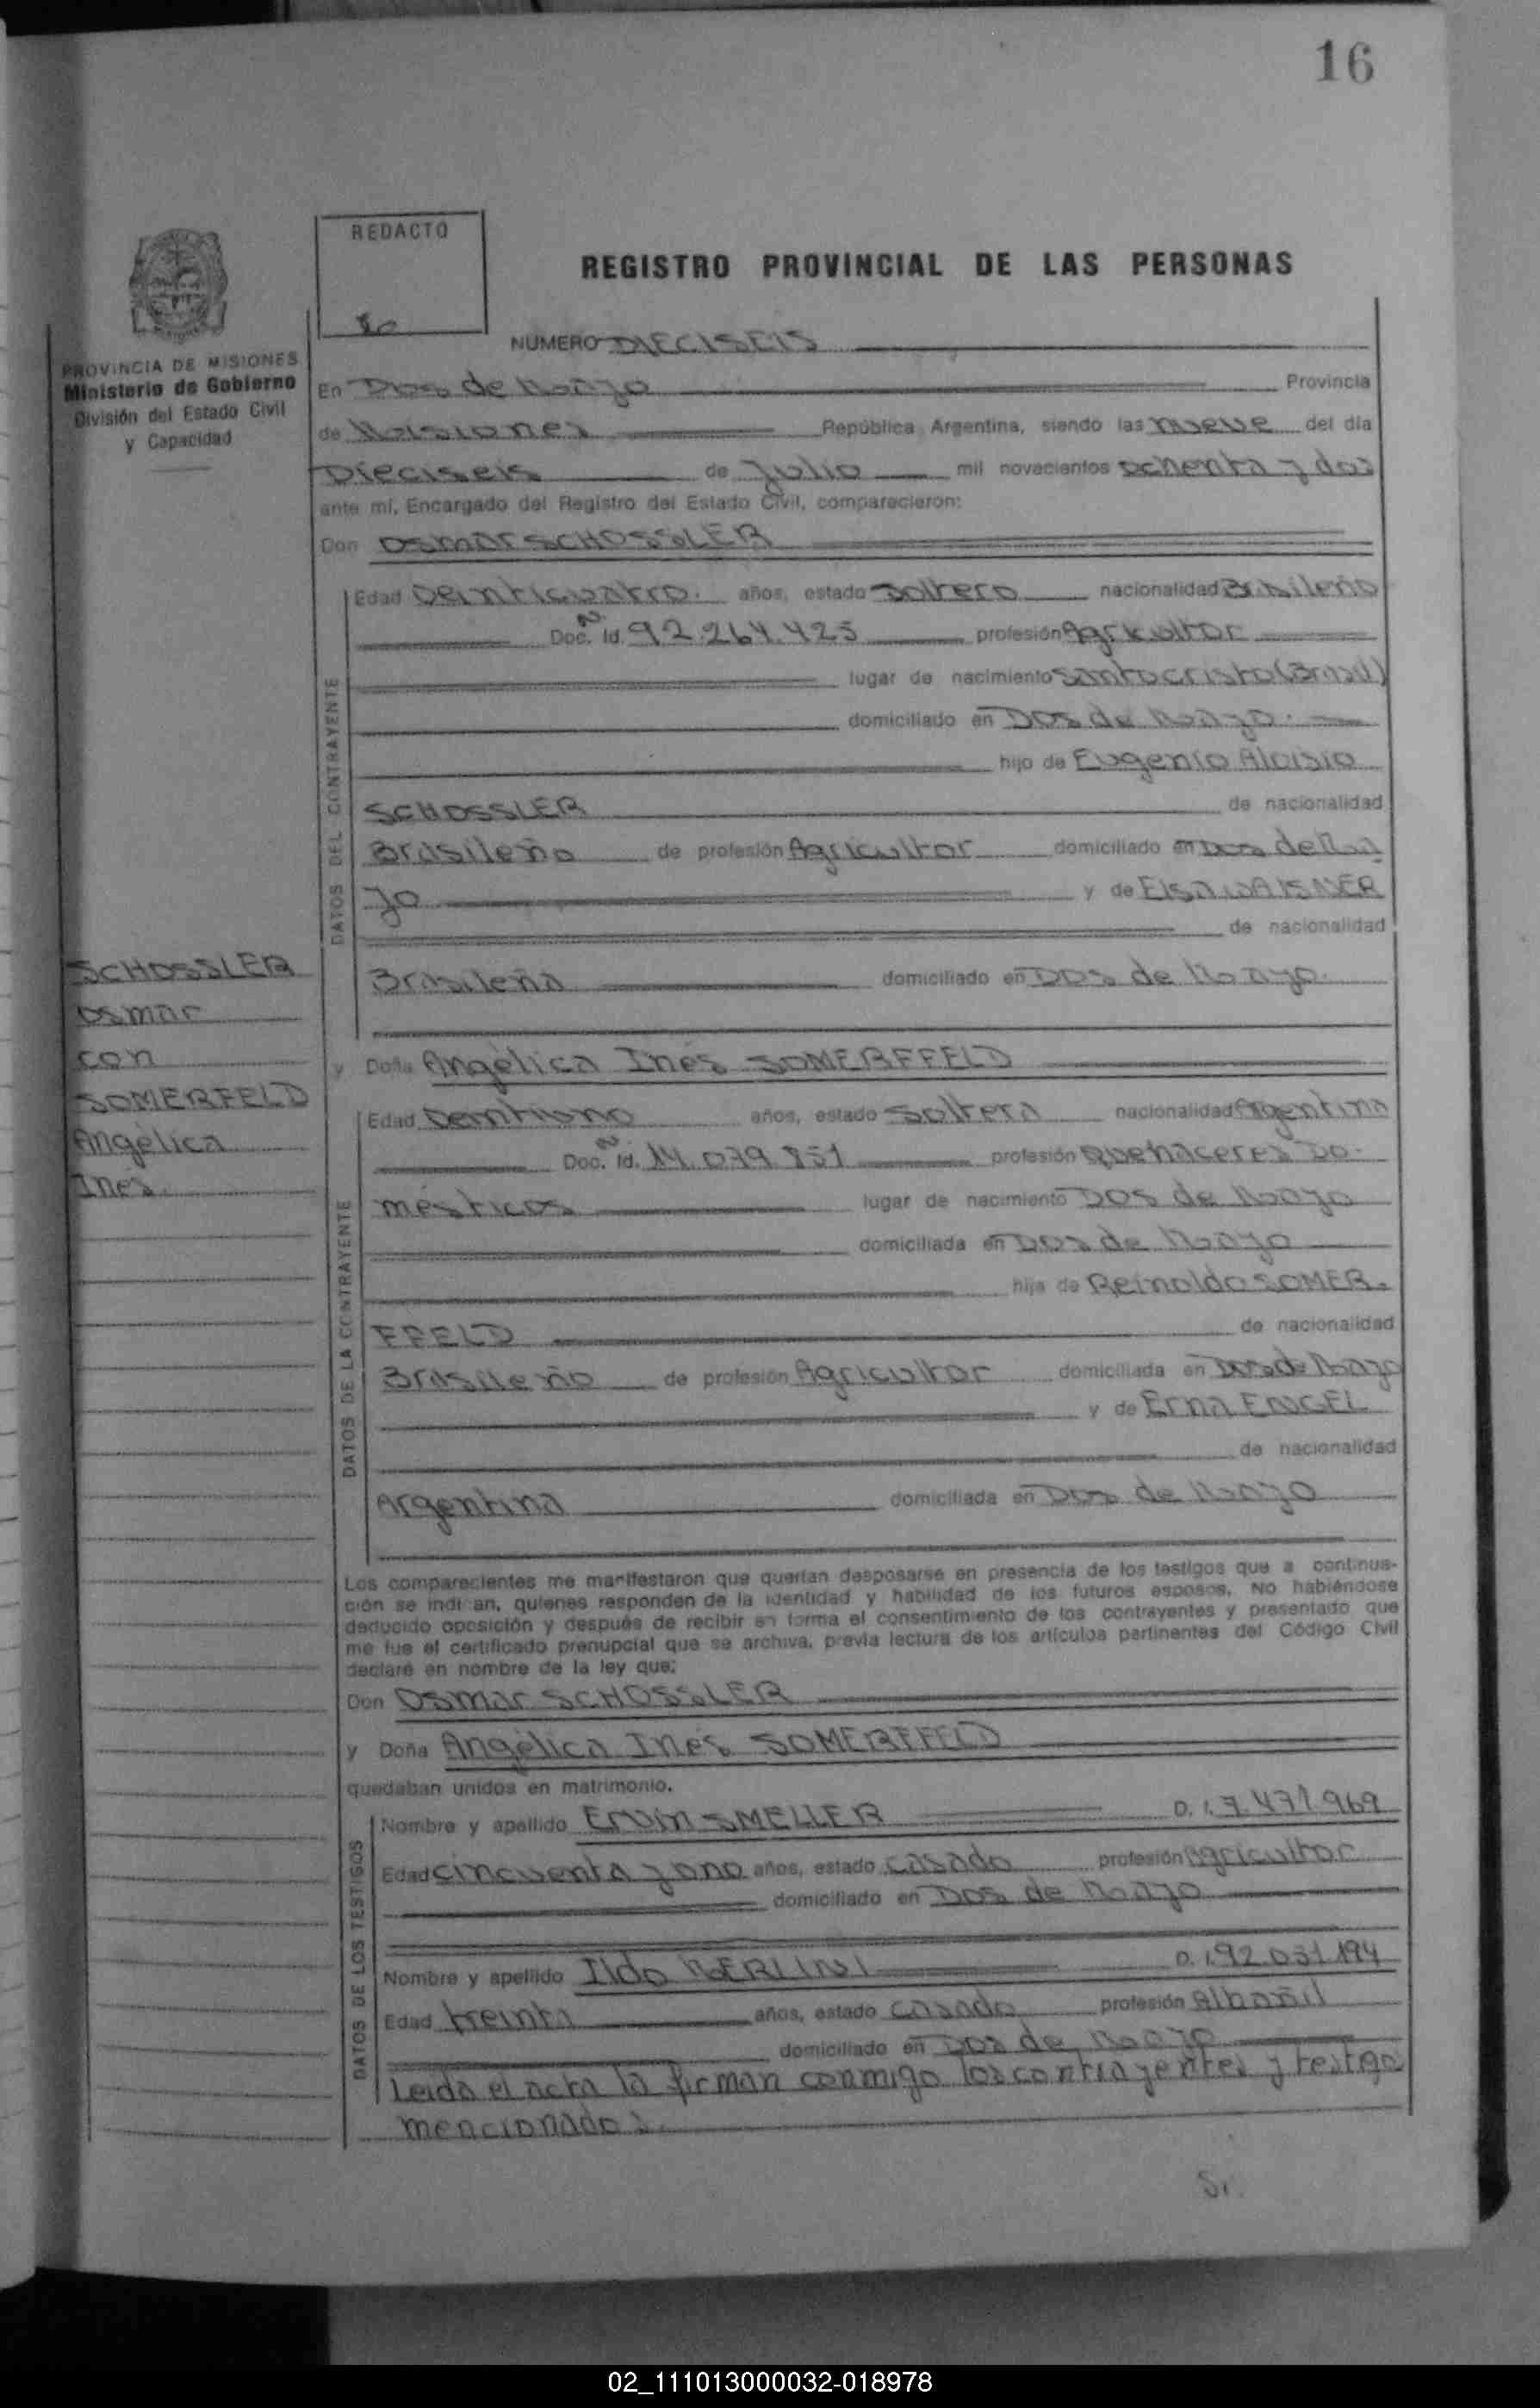 16
REDACTO
REGISTRO PROVINCIAL DE LAS PERSONAS
NUMERO DIECISEIS
PROVINCIA DE MISIONES
Ministerio de Gobierno
División del Estado Civil
y Capacidad
En Dos de Mayo Provincia
de Misiones República Argentina, siendo las nueve del día
Dieciseis de Julio mil novecientos ochenta y dos
ante mí, Encargado del Registro del Estado Civil, comparecieron:
Don Osmar SCHOSSLER
DATOS DEL CONTRAYENTE
Edad Veinticuatro. años, estado Soltero nacionalidad Brasileño
Doc. Id. Nº 92.264.425 profesión Agricultor
lugar de nacimiento Santo Cristo (Brasil)
domiciliado en Dos de Mayo.
hijo de Eugenio Aloisio
SCHOSSLER de nacionalidad
Brasileño de profesión Agricultor domiciliado en Dos de Ma
yo y de Elsa WAISNER
de nacionalidad
Brasileña domiciliado en Dos de Mayo.
SCHOSSLER
Osmar
con
SOMERFELD
Angélica
Inés.
y Doña Angélica Inés SOMERFFELD
DATOS DE LA CONTRAYENTE
Edad Veintiuno años, estado Soltera nacionalidad Argentina
Doc. Id. Nº 14.079.851 profesión Quehaceres Do-
mésticos lugar de nacimiento Dos de Mayo
domiciliada en Dos de Mayo
hija de Reinoldo SOMER-
FFELD de nacionalidad
Brasileño de profesión Agricultor domiciliada en Dos de Mayo
y de Erna ENGEL
de nacionalidad
Argentina domiciliada en Dos de Mayo
Los comparecientes me manifestaron que querían desposarse en presencia de los testigos que a continua-
ción se indican, quienes responden de la identidad y habilidad de los futuros esposos. No habiéndose
deducido oposición y después de recibir en forma el consentimiento de los contrayentes y presentado que
me fue el certificado prenupcial que se archiva, previa lectura de los artículos pertinentes del Código Civil
declaré en nombre de la ley que:
Don Osmar SCHOSSLER
y Doña Angélica Inés SOMERFFELD
quedaban unidos en matrimonio.
DATOS DE LOS TESTIGOS
Nombre y apellido Ervin SMELLER D.I. 7.471.969
Edad cincuenta y uno años, estado casado profesión Agricultor
domiciliado en Dos de Mayo
Nombre y apellido Ildo MERLINI D.I. 92.031.194
Edad treinta años, estado casado profesión Albañil
domiciliado en Dos de Mayo
Leída el acta la firman conmigo los contrayentes y testigos
mencionados.
02_111013000032-018978